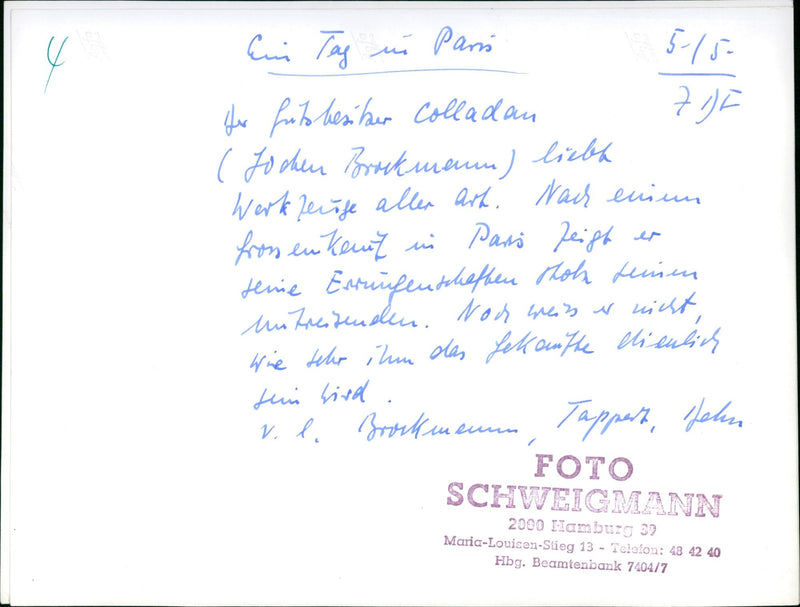 4
Ein Tag in Paris
5-/5-
7 DF
Der Gutsbesitzer Colladan
(Jochen Brockmann) liebt
Werkzeuge aller Art. Nach einem
Grosseinkauf in Paris zeigt er
seine Errungenschaften stolz seinen
Mitreisenden. Noch weiss er nicht,
wie sehr ihm das Gekaufte dienlich
sein wird.
v. l. Brockmann, Tappert, Hehn
FOTO
SCHWEIGMANN
2000 Hamburg 39
Maria-Louisen-Stieg 13 - Telefon: 48 42 40
Hbg. Beamtenbank 7404/7